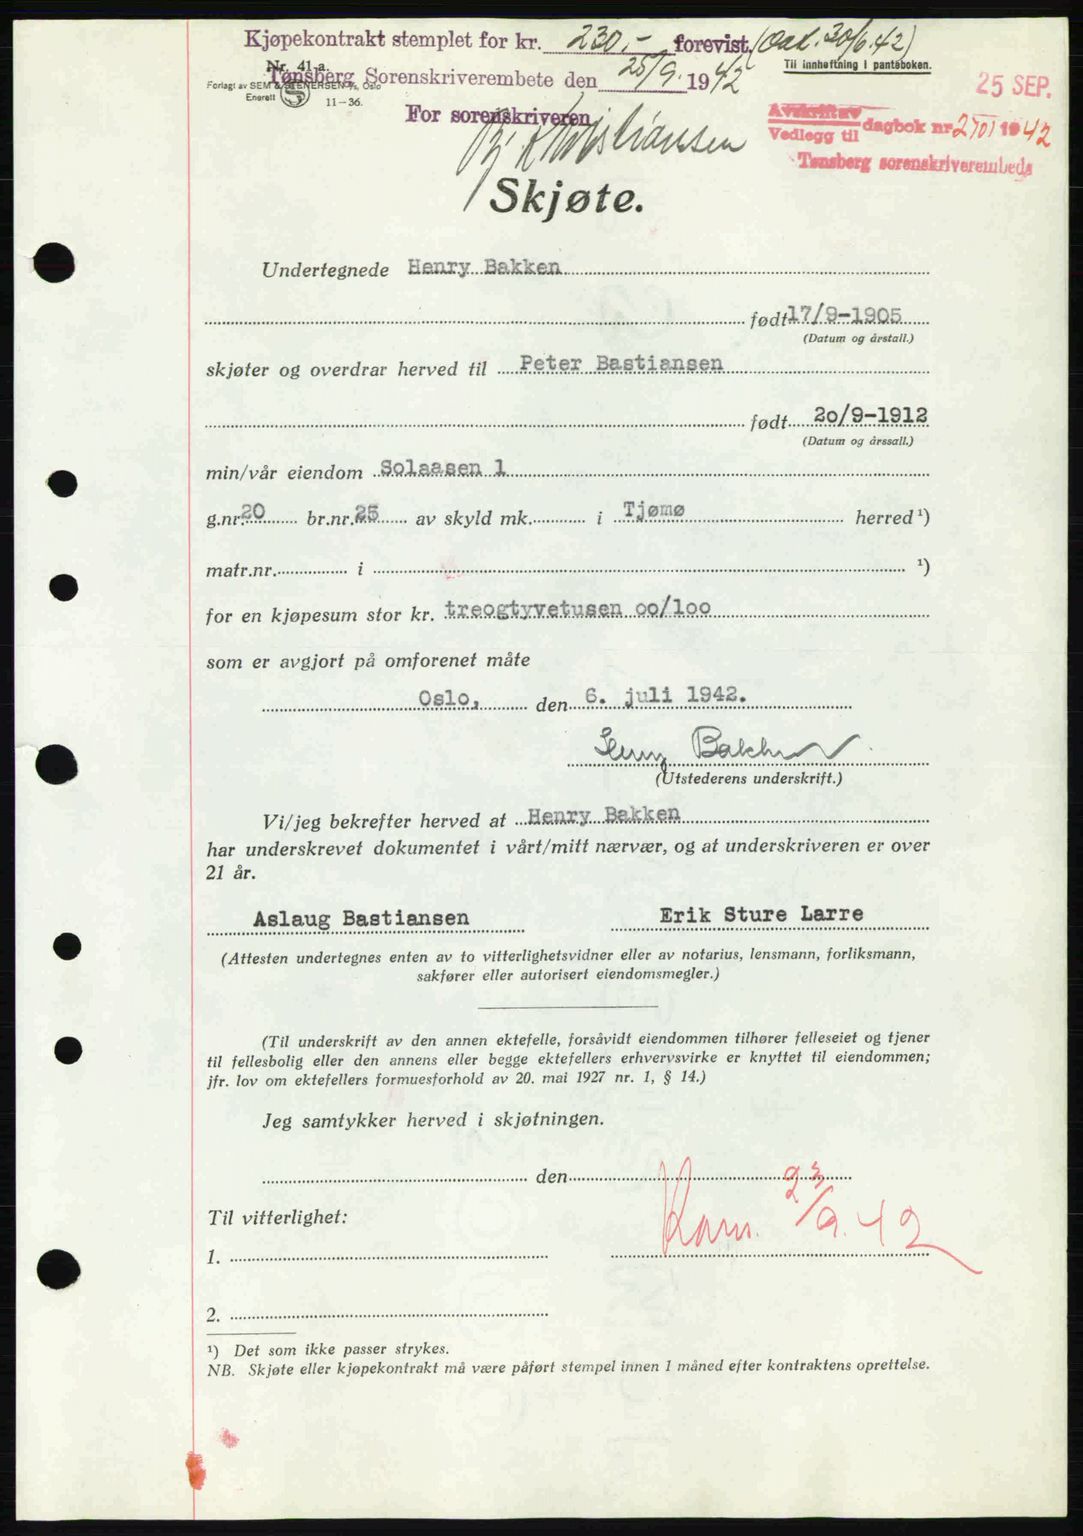 Kjøpekontrakt stemplet for kr. 230.- forevist. (Dat. 30/6.42)
Nr. 41-a.
Til innheftning i panteboken.
Forlagt av SEM & STENERSEN A/S, Oslo
Tønsberg Sorenskriverembete den 25/9. 1942
25 SEP.
Enerett
11-36.
For sorenskriveren
Avskrift av
Vedlegg til dagbok nr 2701 1942
Kristiansen
Tønsberg sorenskriverembede
Skjøte.
Undertegnede Henry Bakken
født 17/9-1905
(Datum og årstall.)
skjøter og overdrar herved til Peter Bastiansen
født 20/9-1912
(Datum og årssall.)
min/vår eiendom Solaasen 1
g.nr. 20 br.nr. 25 av skyld mk. i Tjømø herred ¹)
matr.nr. i ¹)
for en kjøpesum stor kr. treogtyvetusen oo/loo
som er avgjort på omforenet måte
Oslo, den 6. juli 1942.
Henry Bakken
(Utstederens underskrift.)
Vi/jeg bekrefter herved at Henry Bakken
har underskrevet dokumentet i vårt/mitt nærvær, og at underskriveren er over
21 år.
Aslaug Bastiansen Erik Sture Larre
(Attesten undertegnes enten av to vitterlighetsvidner eller av notarius, lensmann, forliksmann,
sakfører eller autorisert eiendomsmegler.)
(Til underskrift av den annen ektefelle, forsåvidt eiendommen tilhører felleseiet og tjener
til fellesbolig eller den annens eller begge ektefellers erhvervsvirke er knyttet til eiendommen;
jfr. lov om ektefellers formuesforhold av 20. mai 1927 nr. 1, § 14.)
Jeg samtykker herved i skjøtningen.
den
Kom. 23/9.42
Til vitterlighet:
1.
2.
¹) Det som ikke passer strykes.
NB. Skjøte eller kjøpekontrakt må være påført stempel innen 1 måned efter kontraktens oprettelse.